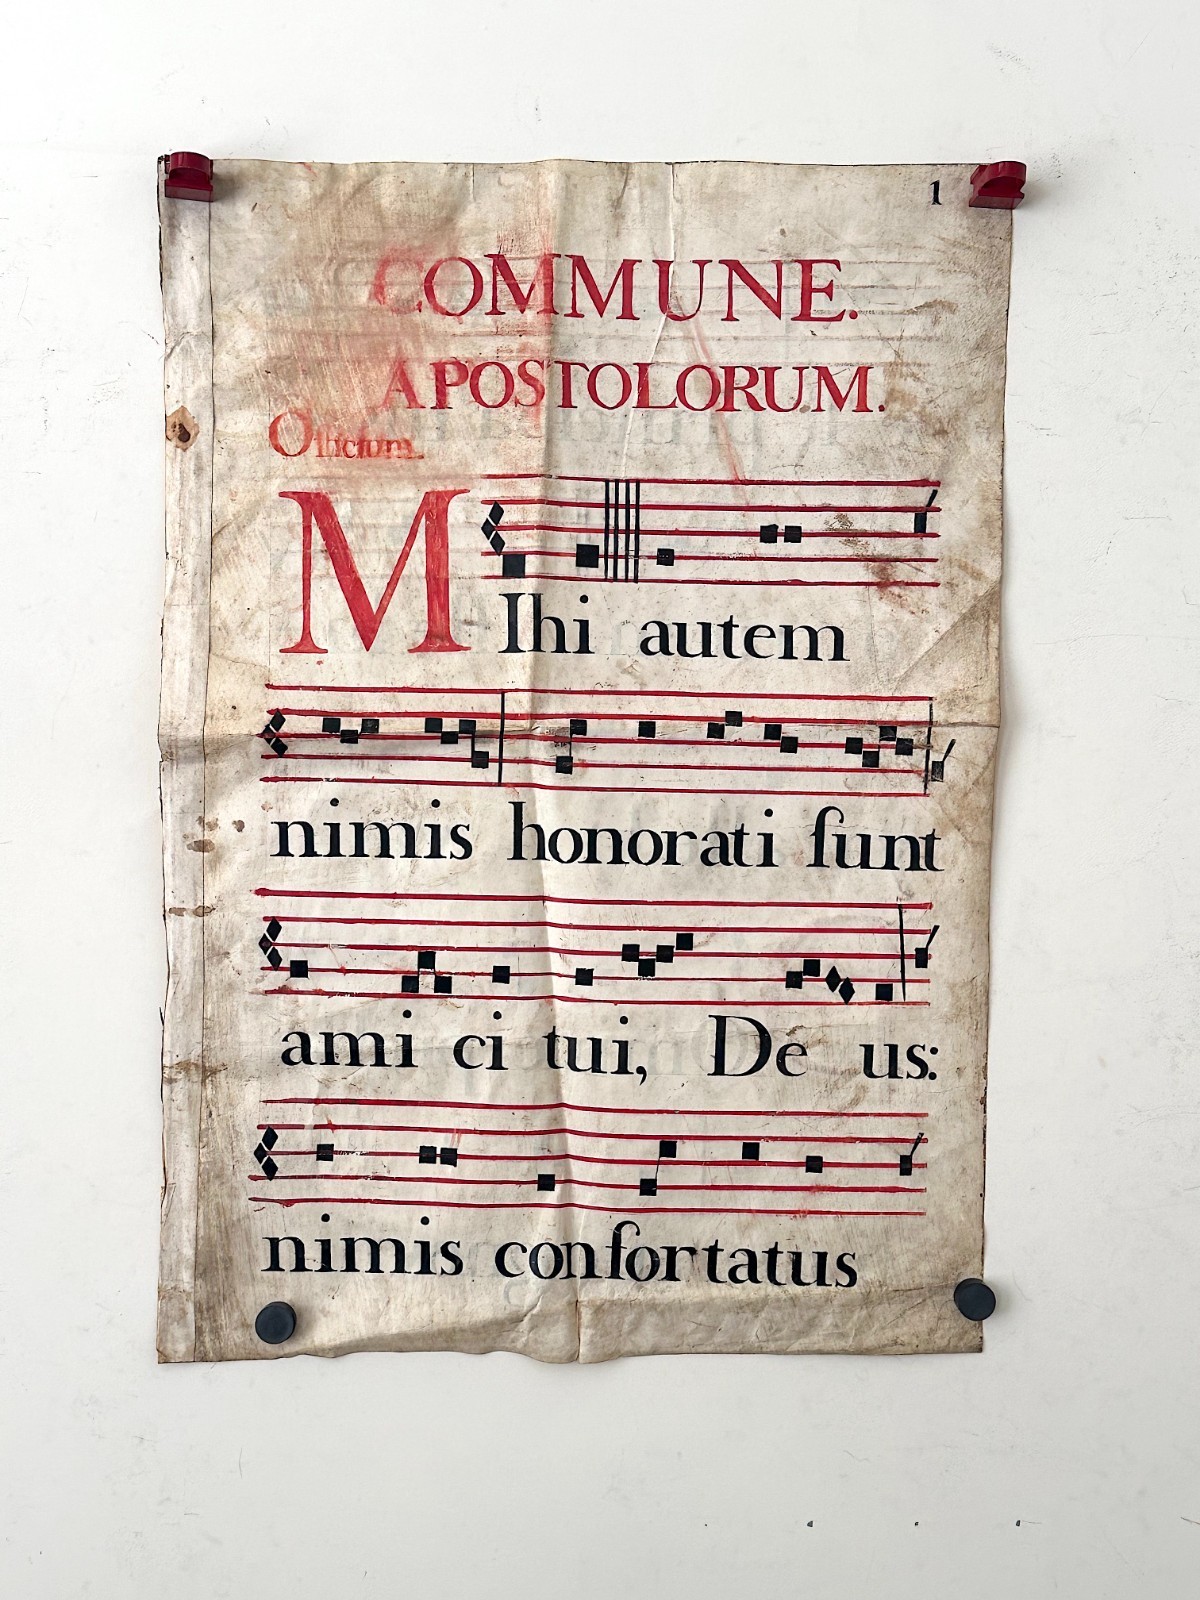 1
COMMUNE.
APOSTOLORUM.
Officium.
MIhi autem
nimis honorati ſunt
ami ci tui, De us:
nimis confortatus